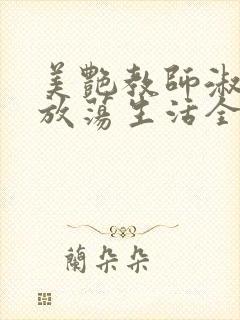 美艷教師淑
放蕩生活全
蘭朵朵